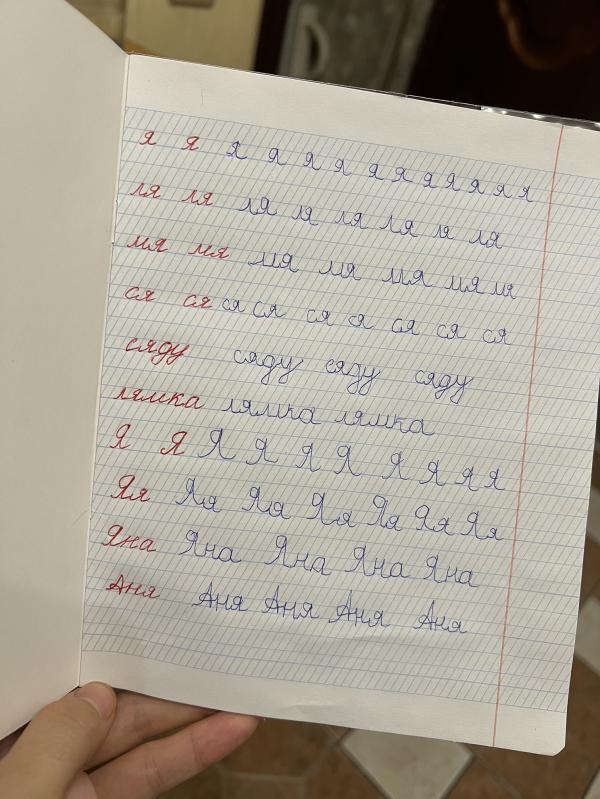 я я я я я я я я я я я я я
ля ля ля ля ля ля ля ля
мя мя мя мя мя мя мя
ся ся ся ся ся ся ся ся ся
сяду сяду сяду сяду
лямка лямка лямка
Я Я Я Я Я Я Я Я Я Я
Яя Яя Яя Яя Яя Яя Яя
Яна Яна Яна Яна Яна
Аня Аня Аня Аня Аня